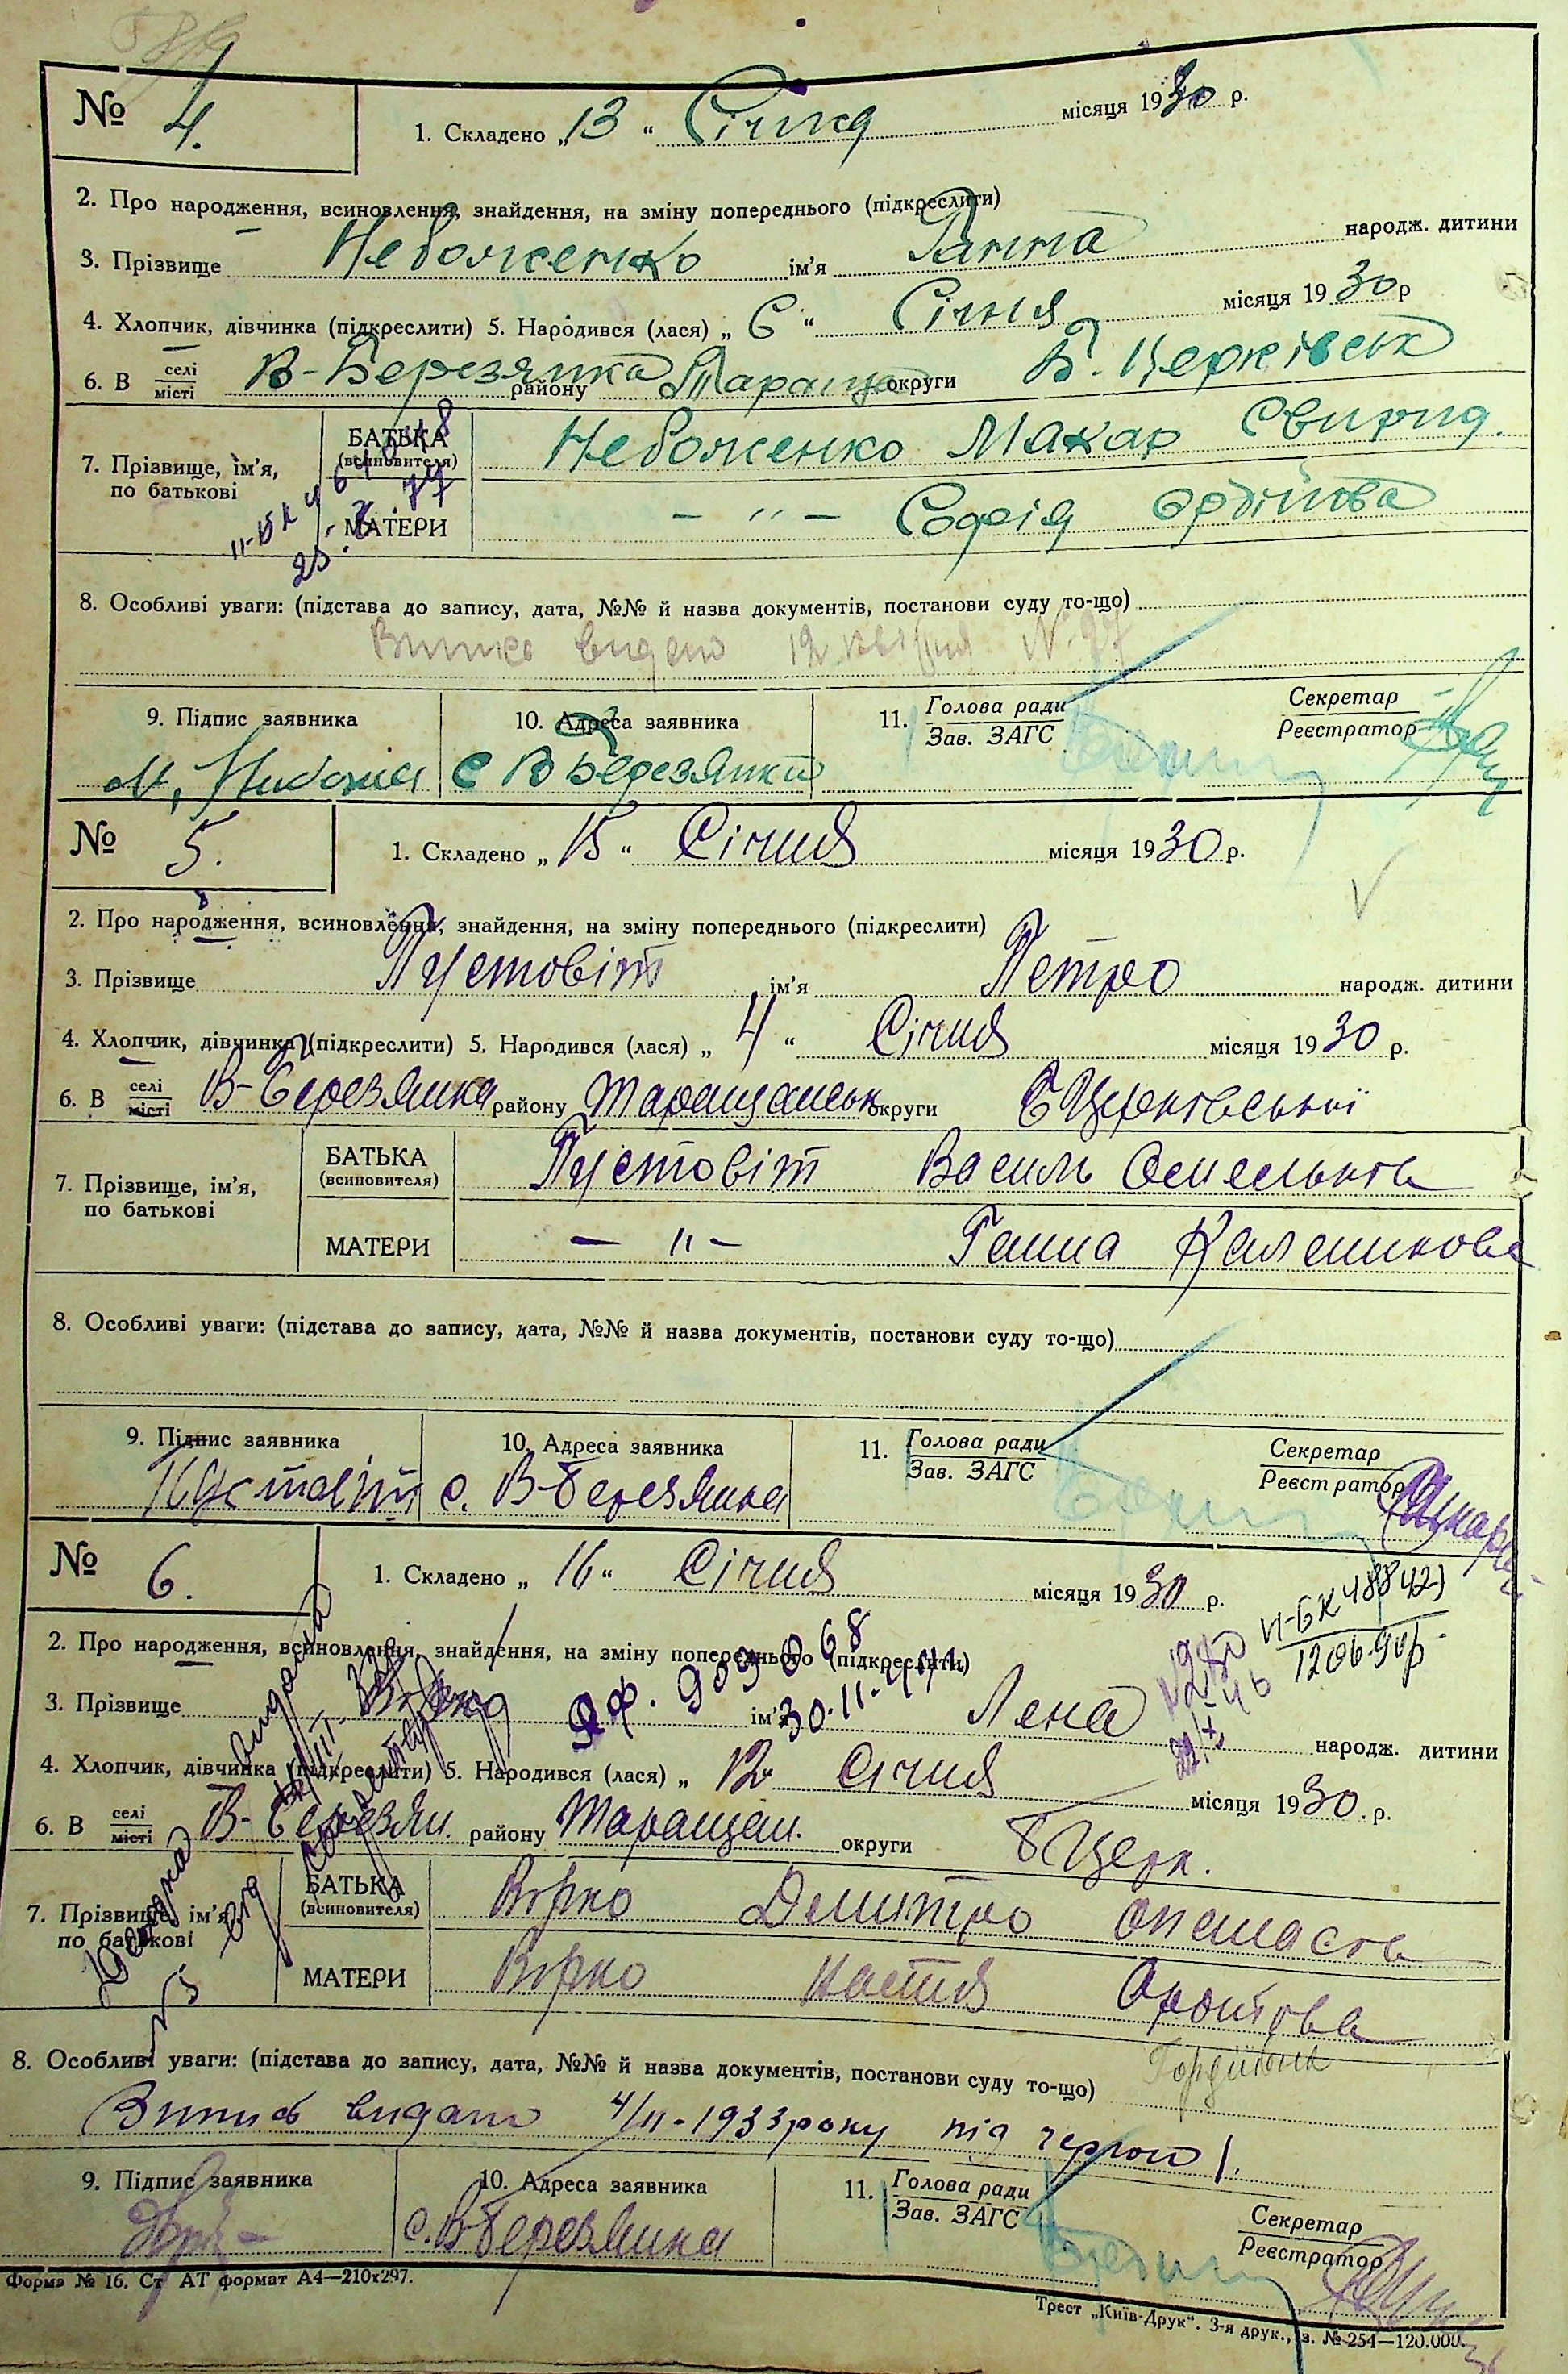 № 4.
1. Складено „ 13 “ Січня місяця 1930 р.
2. Про народження, всиновлення, знайдення, на зміну попереднього (підкреслити)
3. Прізвище Небоженко ім'я Ганна народж. дитини
4. Хлопчик, дівчинка (підкреслити) 5. Народився (лася) „ 6 “ Січня місяця 1930 р
6. В селі місті В-Березянка району Тараща округи Б. Церківськ
7. Прізвище, ім'я, по батькові
БАТЬКА (всиновителя) Небоженко Макар Свирид.
МАТЕРИ — " — Софія
8. Особливі уваги: (підстава до запису, дата, №№ й назва документів, постанови суду то-що)
видано 12
9. Підпис заявника 10. Адреса заявника 11. Голова ради Зав. ЗАГС Секретар Реєстратор
с В Березянка
№ 5.
1. Складено „ 15 “ Січня місяця 1930 р.
2. Про народження, всиновлення, знайдення, на зміну попереднього (підкреслити)
3. Прізвище Пустовіт ім'я Петро народж. дитини
4. Хлопчик, дівчинка (підкреслити) 5. Народився (лася) „ 4 “ Січня місяця 1930 р.
6. В селі місті В-Березянка району Таращанськ округи БЦерківської
7. Прізвище, ім'я, по батькові
БАТЬКА (всиновителя) Пустовіт Василь Омелькові
МАТЕРИ — " — Ганна Каленикова
8. Особливі уваги: (підстава до запису, дата, №№ й назва документів, постанови суду то-що)
9. Підпис заявника 10. Адреса заявника 11. Голова ради Зав. ЗАГС Секретар Реєстратор
Пустовіт с. В-Березянка
№ 6.
1. Складено „ 16 “ Січня місяця 1930 р.
VI-БК 488427
1206.90р.
2. Про народження, всиновлення, знайдення, на зміну попереднього (підкреслити)
3. Прізвище ім'я Лена народж. дитини
4. Хлопчик, дівчинка (підкреслити) 5. Народився (лася) „ 12 Січня місяця 1930 р.
6. В селі місті В-Березян. району Таращан. округи БЦерк.
7. Прізвище, ім'я, по батькові
БАТЬКА (всиновителя) Юрко Дмитро
МАТЕРИ Юрко Настя
Гордіївна
8. Особливі уваги: (підстава до запису, дата, №№ й назва документів, постанови суду то-що)
Випись видано 4/II-1933 року під
9. Підпис заявника 10. Адреса заявника 11. Голова ради Зав. ЗАГС Секретар Реєстратор
с. В Березянка
Форма № 16. Ст АТ формат А4—210x297.
Трест „Київ-Друк“. 3-я друк., з. № 254—120.000.